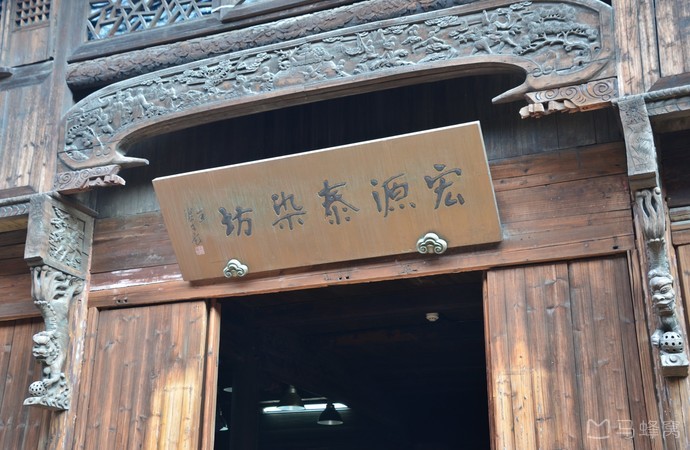 宏源泰染坊
马蜂窝